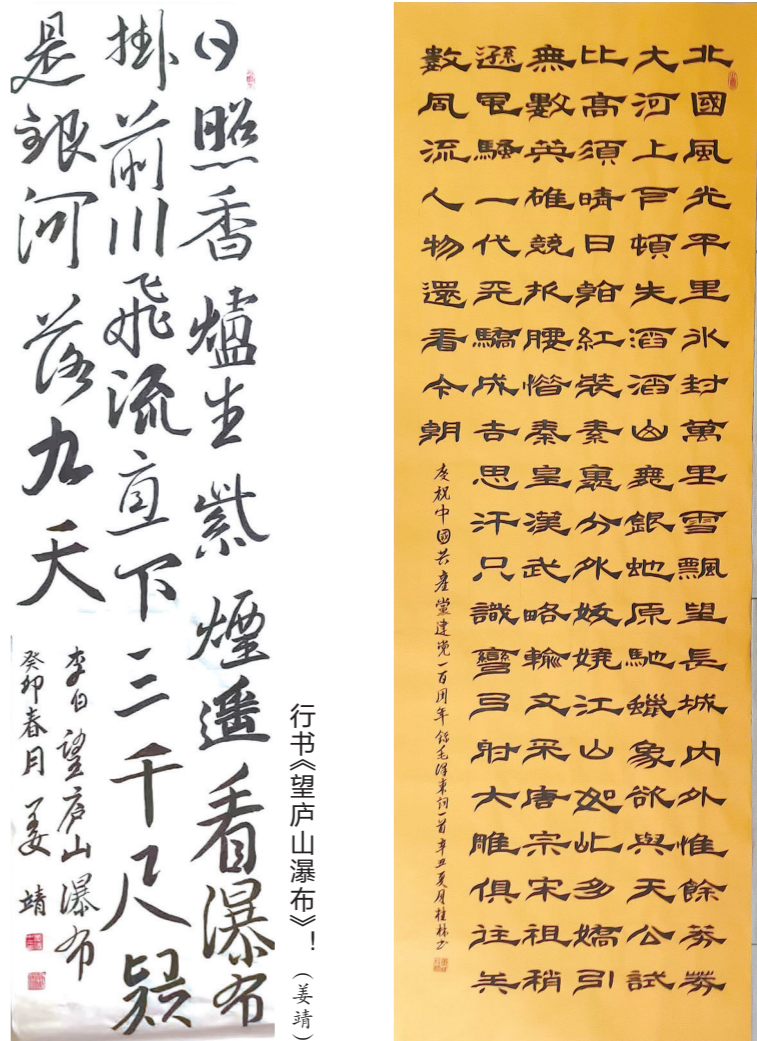 日照香爐生紫煙遥看瀑布
掛前川飛流直下三千尺疑
是銀河落九天
李白望庐山瀑布
癸卯春月姜靖
行书《望庐山瀑布》！（姜靖）
北國風光千里氷封萬里雪飄望長城内外惟餘莽莽
大河上下頓失滔滔山舞銀虵原馳蠟象欲與天公試
比高須晴日看紅裝素裹分外妖嬈江山如此多嬌引
無數英雄競折腰惜秦皇漢武略輸文采唐宗宋祖稍
遜風騷一代天驕成吉思汗只識彎弓射大雕俱往矣
數風流人物還看今朝
庆祝中國共産黨建党一百周年錄毛泽東詞一首辛丑夏月桂林书